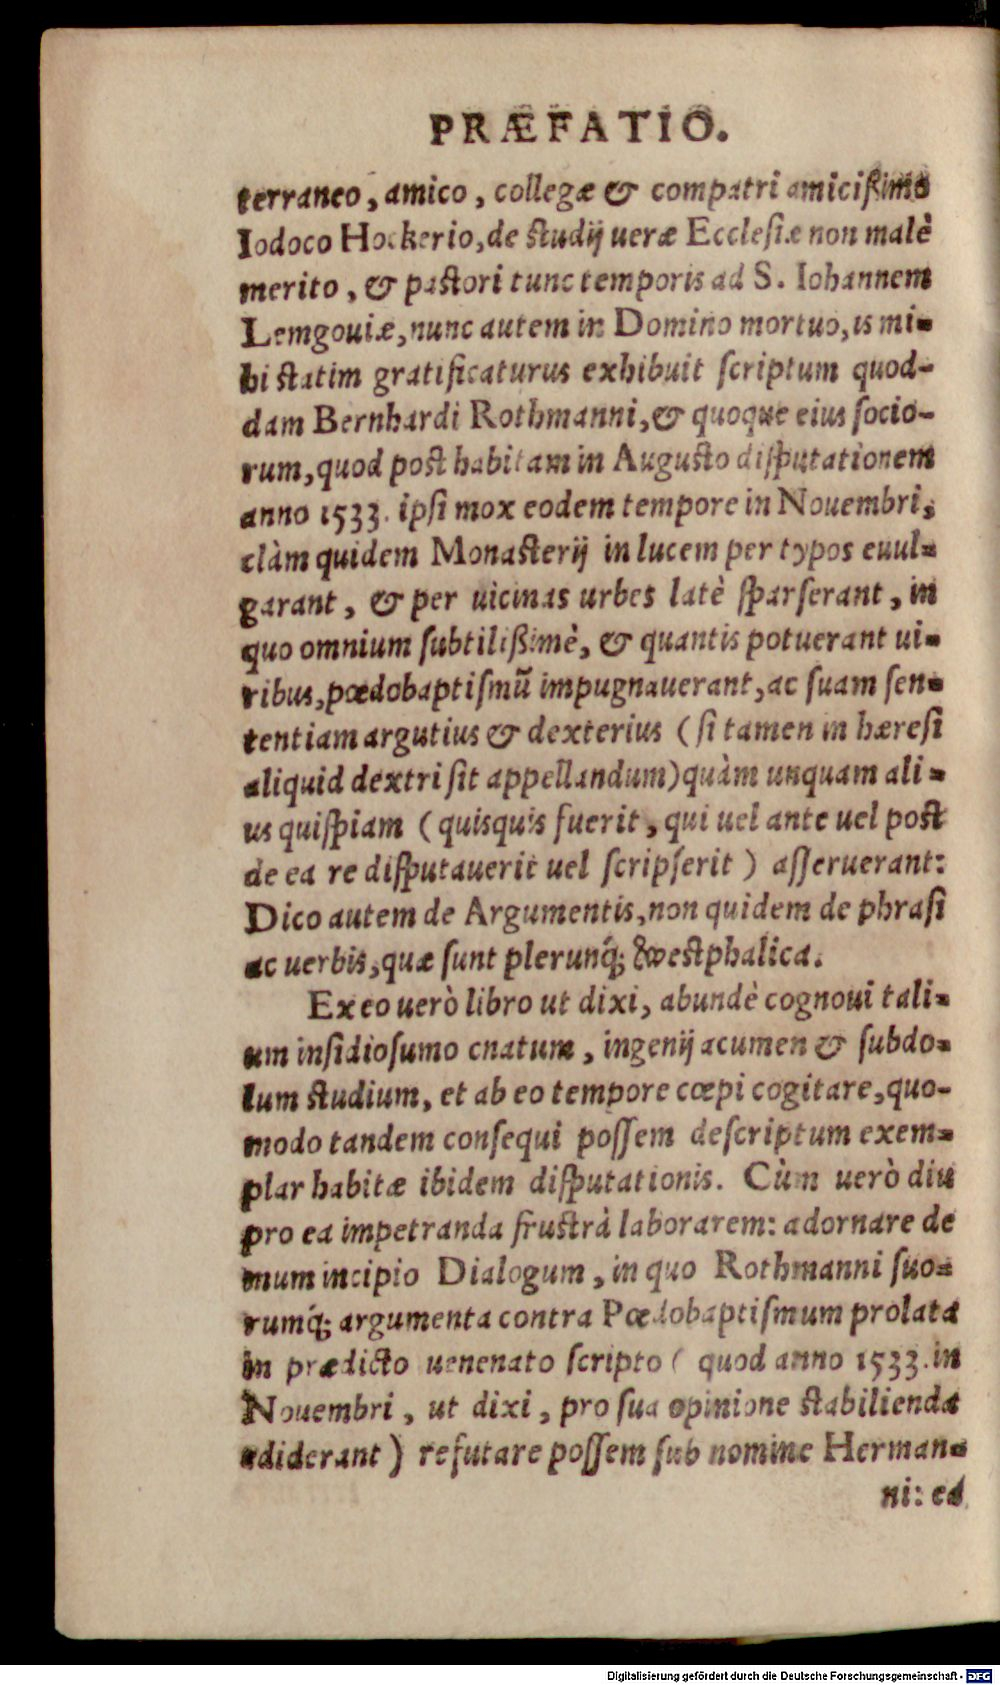 PRÆFATIO.
terraneo, amico, collegæ & compatri amicißimo
Iodoco Hockerio, de studij ueræ Ecclesiæ non malè
merito, & pastori tunc temporis ad S. Iohannem
Lemgouiæ, nunc autem in Domino mortuo, is mi-
hi statim gratificaturus exhibuit scriptum quod-
dam Bernhardi Rothmanni, & quoque eius socio-
rum, quod post habitam in Augusto disputationem
anno 1533. ipsi mox eodem tempore in Nouembri,
clàm quidem Monasterij in lucem per typos euul-
garant, & per uicinas urbes latè sparserant, in
quo omnium subtilißimè, & quantis potuerant ui-
ribus, pœdobaptismū impugnauerant, ac suam sen-
tentiam argutius & dexterius (si tamen in hæresi
aliquid dextri sit appellandum) quàm unquam ali-
us quispiam (quisquis fuerit, qui uel ante uel post
de ea re disputauerit uel scripserit) asseruerant:
Dico autem de Argumentis, non quidem de phrasi
ac uerbis, quæ sunt plerunq́; Westphalica.
Ex eo uerò libro ut dixi, abundè cognoui tali-
um insidiosumo cnatum, ingenij acumen & subdo-
lum studium, et ab eo tempore cœpi cogitare, quo-
modo tandem consequi possem descriptum exem-
plar habitæ ibidem disputationis. Cùm uerò diu
pro ea impetranda frustrà laborarem: adornare de
mum incipio Dialogum, in quo Rothmanni suo-
rumq́; argumenta contra Pœdobaptismum prolata
in prædicto uenenato scripto (quod anno 1533. in
Nouembri, ut dixi, pro sua opinione stabilienda
ediderant) refutare possem sub nomine Herman-
ni: ea
Digitalisierung gefördert durch die Deutsche Forschungsgemeinschaft - DFG